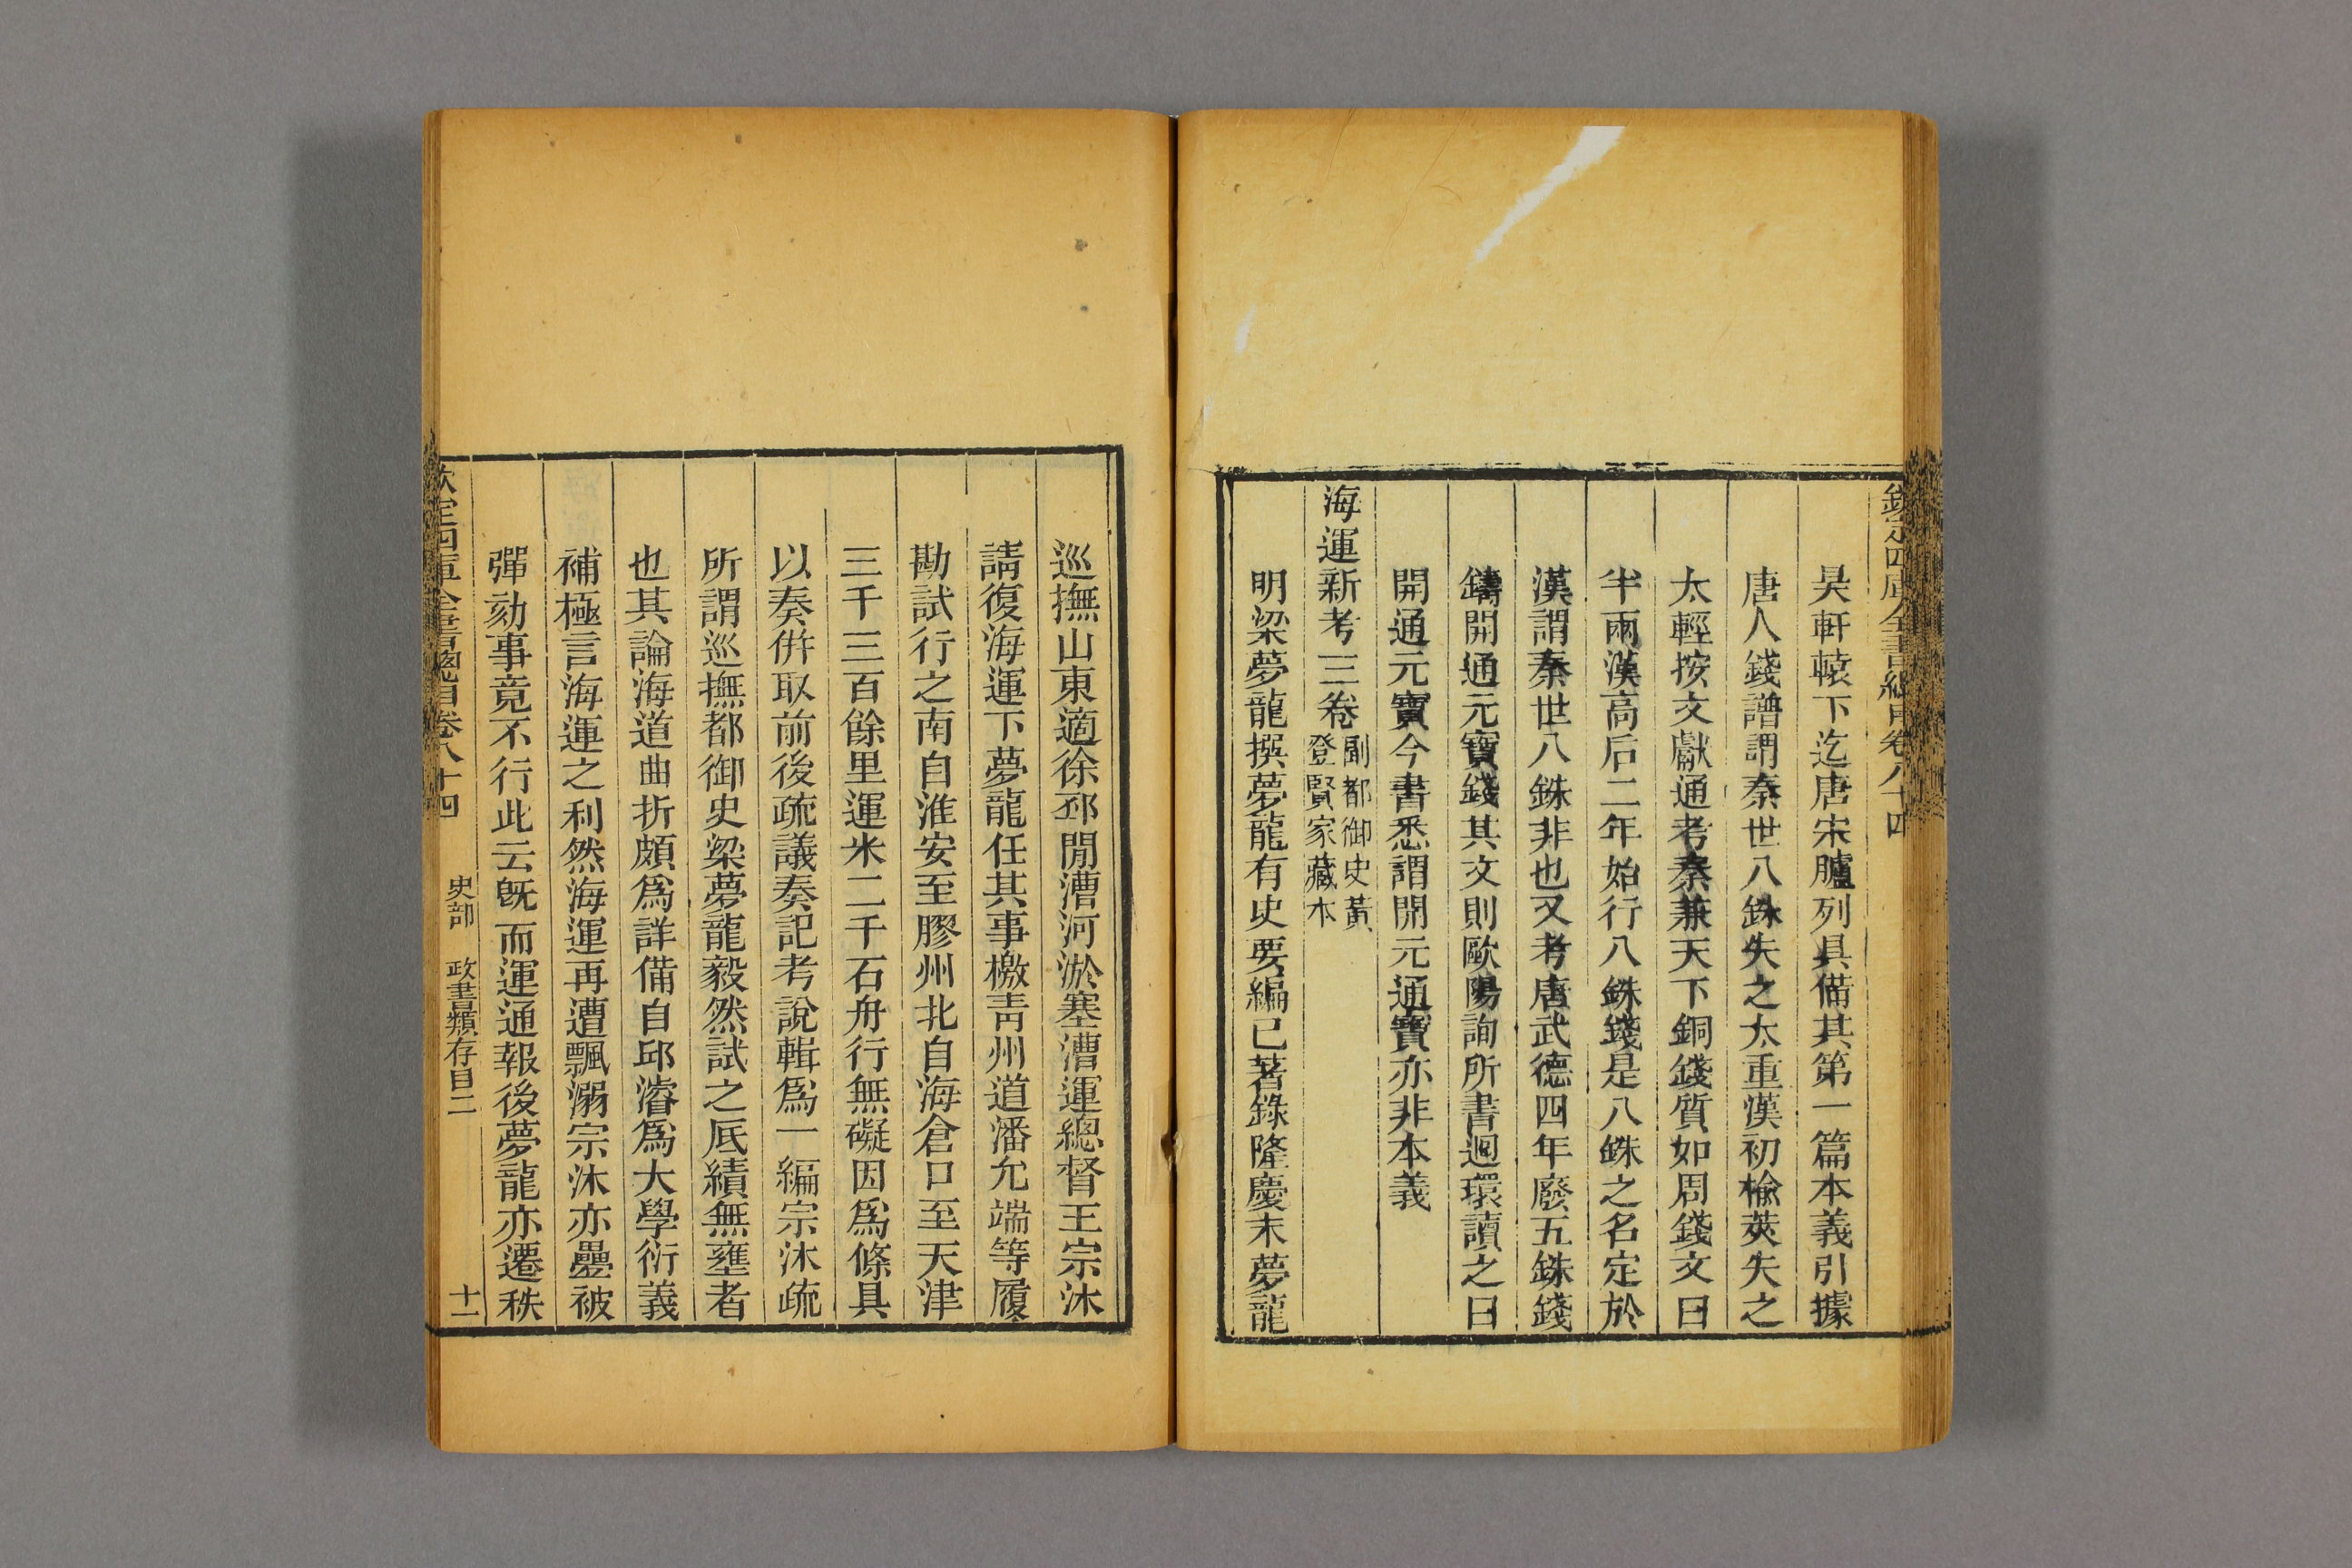 欽定四庫全書總目卷八十四
昊軒轅下迄唐宋臚列具備其第一篇本義引據
唐人錢譜謂秦世八銖失之太重漢初榆莢失之
太輕按文獻通考秦兼天下銅錢質如周錢文曰
半兩漢高后二年始行八銖錢是八銖之名定於
漢謂秦世八銖非也又考唐武德四年廢五銖錢
鑄開通元寶錢其文則歐陽詢所書迴環讀之曰
開通元寶今書悉謂開元通寶亦非本義
海運新考三卷副都御史黃
登賢家藏本
明梁夢龍撰夢龍有史要編已著錄隆慶末夢龍
巡撫山東適徐邳閒漕河淤塞漕運總督王宗沐
請復海運下夢龍任其事檄靑州道潘允端等履
勘試行之南自淮安至膠州北自海倉口至天津
三千三百餘里運米二千石舟行無礙因爲條具
以奏倂取前後疏議奏記考說輯爲一編宗沐疏
所謂巡撫都御史梁夢龍毅然試之厎績無壅者
也其論海道曲折頗爲詳備自邱濬爲大學衍義
補極言海運之利然海運再遭飄溺宗沐亦疊被
彈劾事竟不行此云旣而運通報後夢龍亦遷秩
欽定四庫全書總目卷八十四 史部 政書類存目二 十一